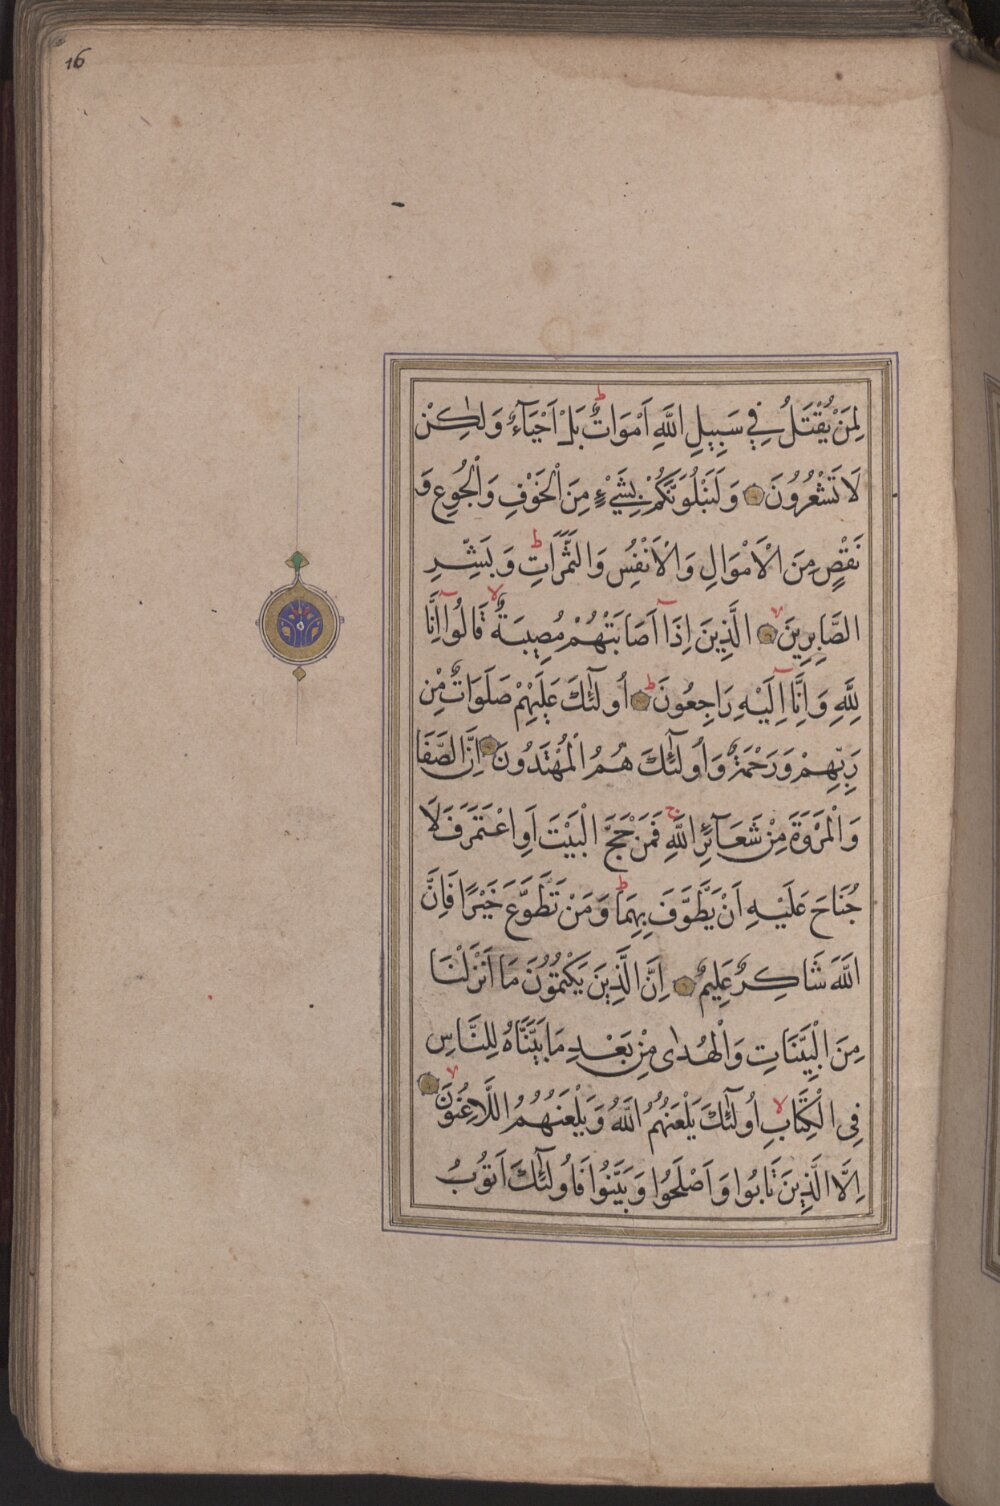 16
لِمَنْ يُقْتَلُ فِي سَبِيلِ اللَّهِ اَمْوَاتٌ ط بَلْ اَحْيَآءٌ وَلٰكِنْ
لَا تَشْعُرُونَ وَلَنَبْلُوَنَّكُمْ بِشَيْءٍ مِنَ الْخَوْفِ وَالْجُوعِ وَ
نَقْصٍ مِنَ الْاَمْوَالِ وَالْاَنْفُسِ وَالثَّمَرَاتِ ط وَبَشِّرِ
الصَّابِرِينَ لا الَّذِينَ اِذَٓا اَصَابَتْهُمْ مُصِيبَةٌ لا قَالُوٓا اِنَّا
لِلّٰهِ وَاِنَّٓا اِلَيْهِ رَاجِعُونَ ط اُولٰٓئِكَ عَلَيْهِمْ صَلَوَاتٌ مِنْ
رَبِّهِمْ وَرَحْمَةٌ وَاُولٰٓئِكَ هُمُ الْمُهْتَدُونَ اِنَّ الصَّفَا
وَالْمَرْوَةَ مِنْ شَعَآئِرِ اللَّهِ ج فَمَنْ حَجَّ الْبَيْتَ اَوِ اعْتَمَرَ فَلَا
جُنَاحَ عَلَيْهِ اَنْ يَطَّوَّفَ بِهِمَا ط وَمَنْ تَطَوَّعَ خَيْرًا فَاِنَّ
اللَّهَ شَاكِرٌ عَلِيمٌ اِنَّ الَّذِينَ يَكْتُمُونَ مَٓا اَنْزَلْنَا
مِنَ الْبَيِّنَاتِ وَالْهُدٰى مِنْ بَعْدِ مَا بَيَّنَّاهُ لِلنَّاسِ
فِي الْكِتَابِ لا اُولٰٓئِكَ يَلْعَنُهُمُ اللَّهُ وَيَلْعَنُهُمُ اللَّاعِنُونَ لا
اِلَّا الَّذِينَ تَابُوا وَاَصْلَحُوا وَبَيَّنُوا فَاُولٰٓئِكَ اَتُوبُ